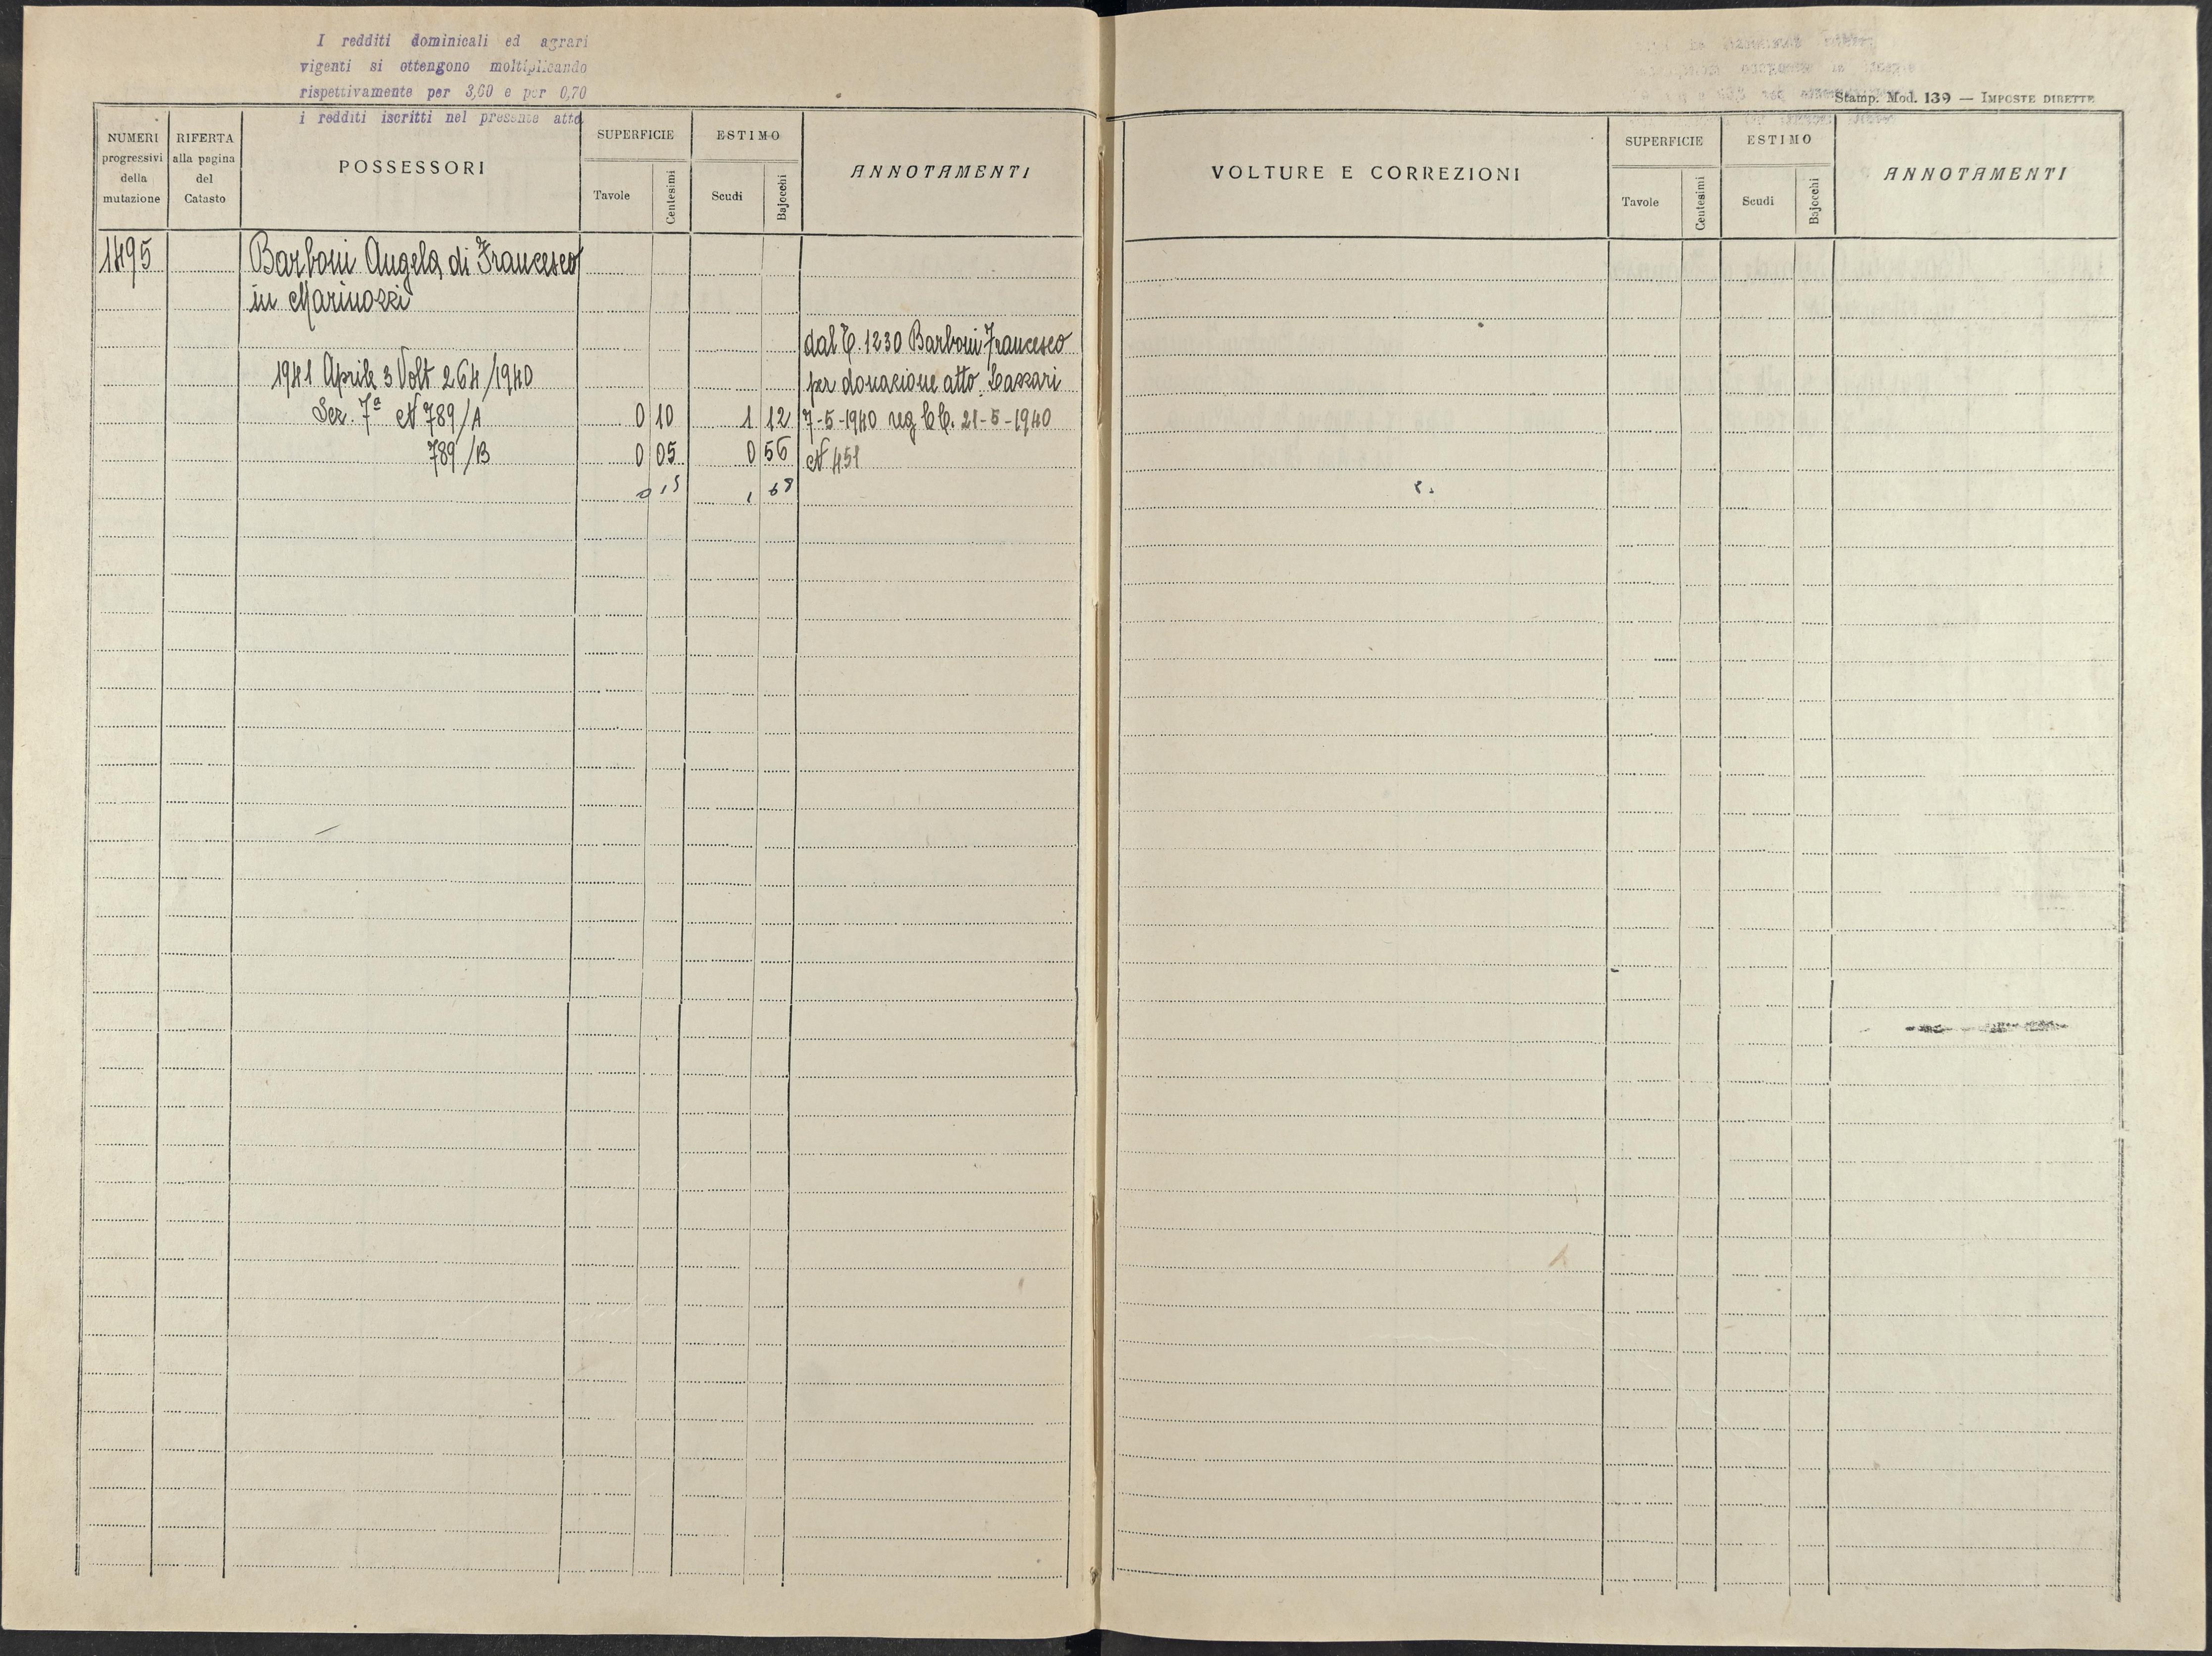 I redditi dominicali ed agrari
vigenti si ottengono moltiplicando
rispettivamente per 3,60 e per 0,70
i redditi iscritti nel presente atto
Stamp. Mod. 139 — IMPOSTE DIRETTE
NUMERI progressivi della mutazione
RIFERTA alla pagina del Catasto
POSSESSORI
SUPERFICIE
Tavole Centesimi
ESTIMO
Scudi Bajocchi
ANNOTAMENTI
VOLTURE E CORREZIONI
SUPERFICIE
Tavole Centesimi
ESTIMO
Scudi Bajocchi
ANNOTAMENTI
1495 Barboni Angela di Francesco
in Marinozzi
dal C. 1230 Barboni Francesco
1941 Aprile 3 Volt 264/1940 per donazione atto
Sez. 7ª N 789/A 0 10 1 12 7-5-1940 reg 21-5-1940
789/B 0 05 0 56 N 451
0 15 1 68